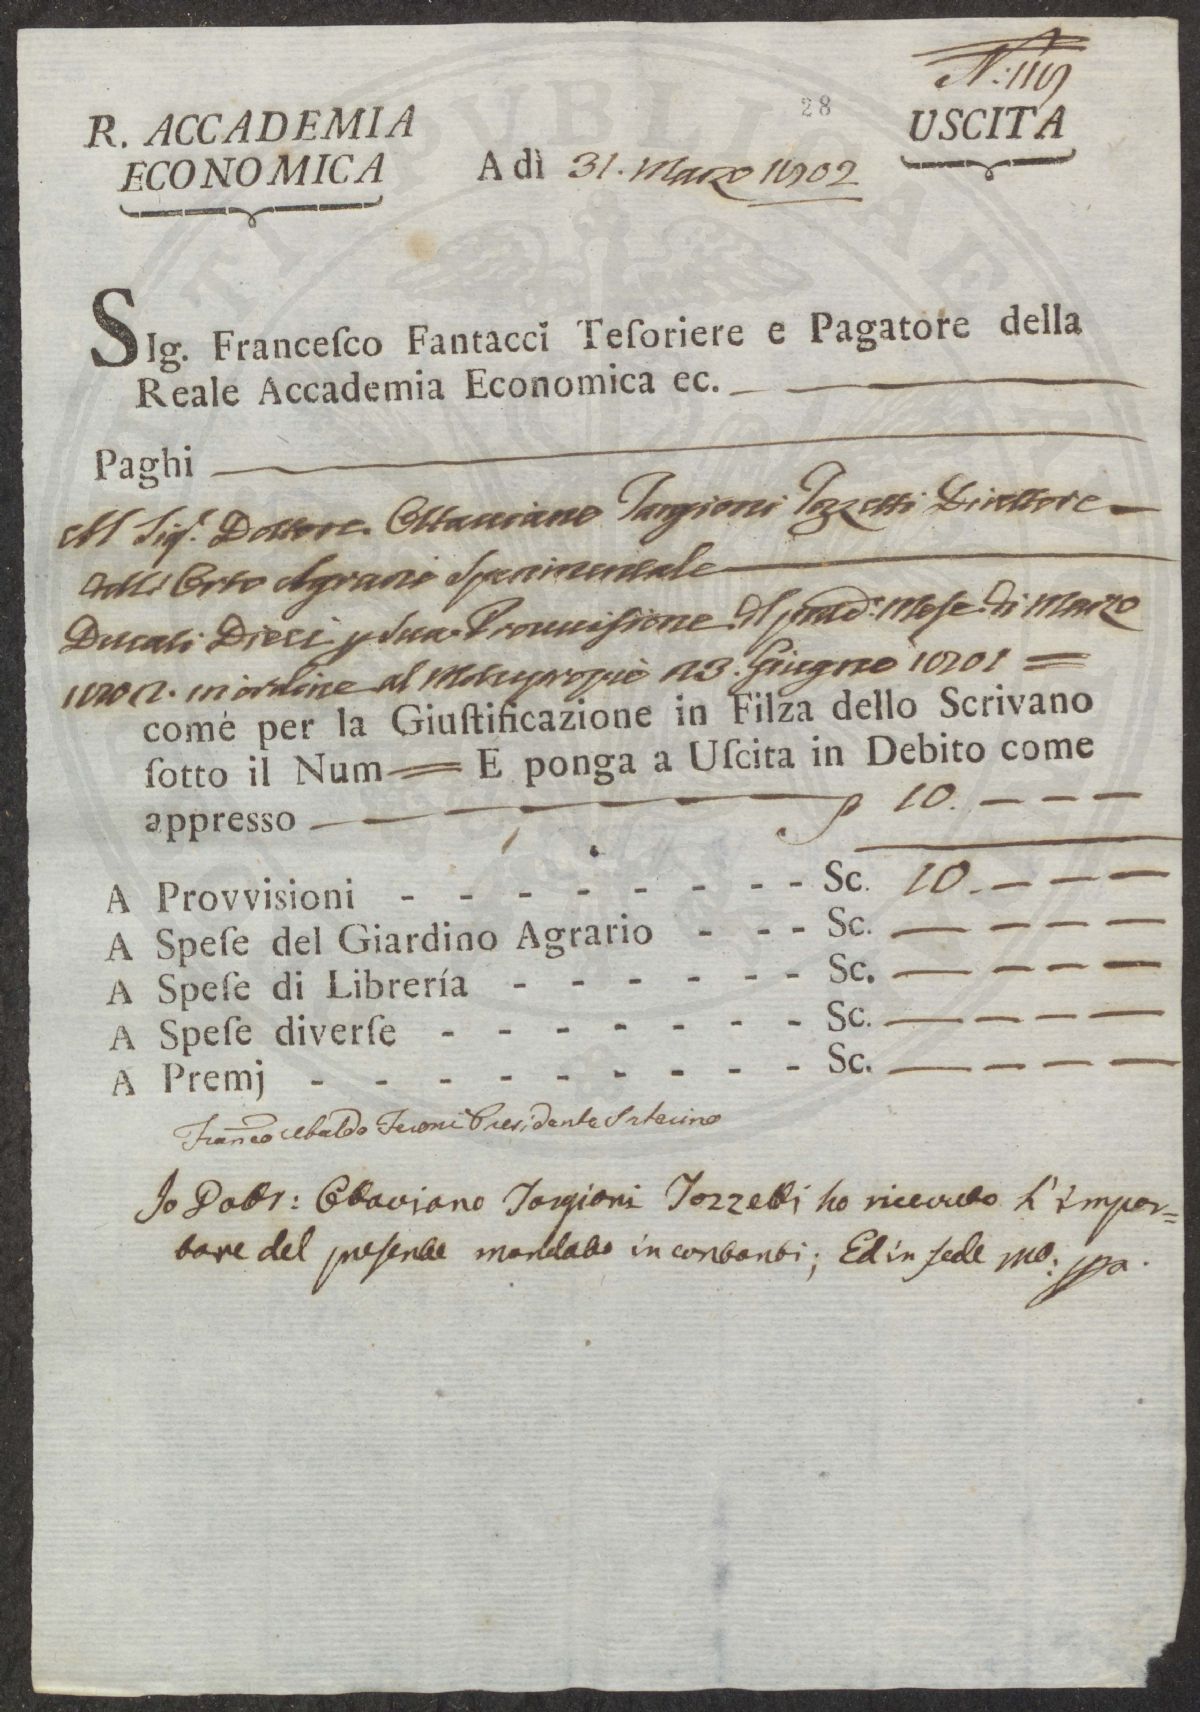 N: 119
28
R. ACCADEMIA
ECONOMICA
USCITA
A dì 31. Marzo 1802
SIg. Franceſco Fantacci Teſoriere e Pagatore della
Reale Accademia Economica ec.
Paghi
Al Sig.r Dottore Ottaviano Targioni Tozzetti Direttore
dell'Orto Agrario Sperimentale
Ducati Dieci p sua Provvisione del pred.o Mese di Marzo
1802. in ordine al Motuproprio 23. Giugno 1801 =
come per la Giuſtificazione in Filza dello Scrivano
ſotto il Num = E ponga a Uſcita in Debito come
appresso 10. — — —
A Provvisioni - - - - - - - - Sc. 10. — — —
A Speſe del Giardino Agrario - - - Sc. — — — —
A Speſe di Librería - - - - - - Sc. — — — —
A Speſe diverſe - - - - - - - Sc. — — — —
A Premj - - - - - - - - - Sc. — — — —
Franco Ubaldo Feroni Presidente Interino
Io Dottr: Ottaviano Targioni Tozzetti ho ricevuto l'Impor=
tare del presente mandato in contanti; Ed in fede mo: ppa.